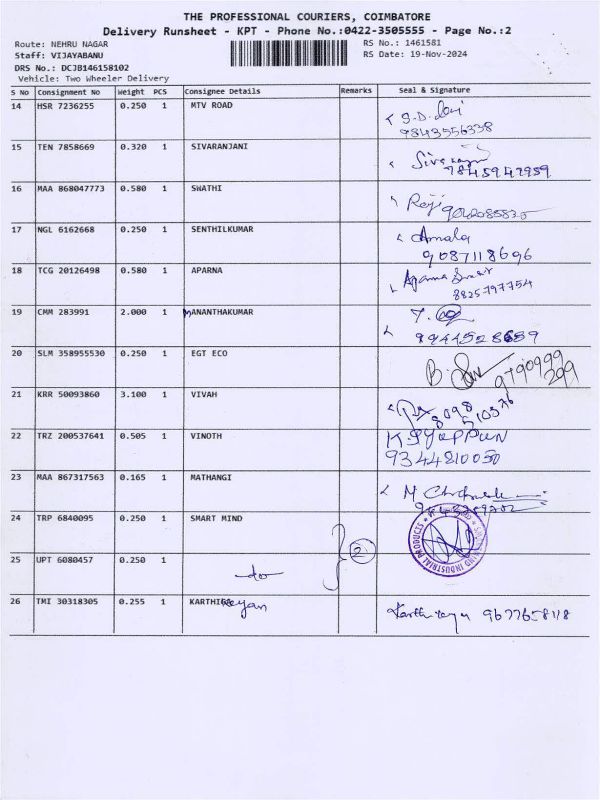 THE PROFESSIONAL COURIERS, COIMBATORE
Delivery Runsheet - KPT - Phone No.:0422-3505555 - Page No.:2
Route: NEHRU NAGAR RS No.: 1461581
Staff: VIJAYABANU RS Date: 19-Nov-2024
DRS No.: DCJB146158102
Vehicle: Two Wheeler Delivery
S No Consignment No Weight PCS Consignee Details Remarks Seal & Signature
14 HSR 7236255 0.250 1 MTV ROAD
9843556338
15 TEN 7858669 0.320 1 SIVARANJANI
9845947959
16 MAA 868047773 0.580 1 SWATHI
17 NGL 6162668 0.250 1 SENTHILKUMAR Amala
9087118696
18 TCG 20126498 0.580 1 APARNA Aparna
8825797754
19 CMM 283991 2.000 1 MANANTHAKUMAR
20 SLM 358955530 0.250 1 EGT ECO
9790999
299
21 KRR 50093860 3.100 1 VIVAH
8098
510376
22 TRZ 200537641 0.505 1 VINOTH K. IYAPPUN
9344210050
23 MAA 867317563 0.165 1 MATHANGI
24 TRP 6840095 0.250 1 SMART MIND
2
INDUSTRIAL PRODUCTS
25 UPT 6080457 0.250 1
do
26 TMI 30318305 0.255 1 KARTHIkeyan Karthikeyan 9677658118